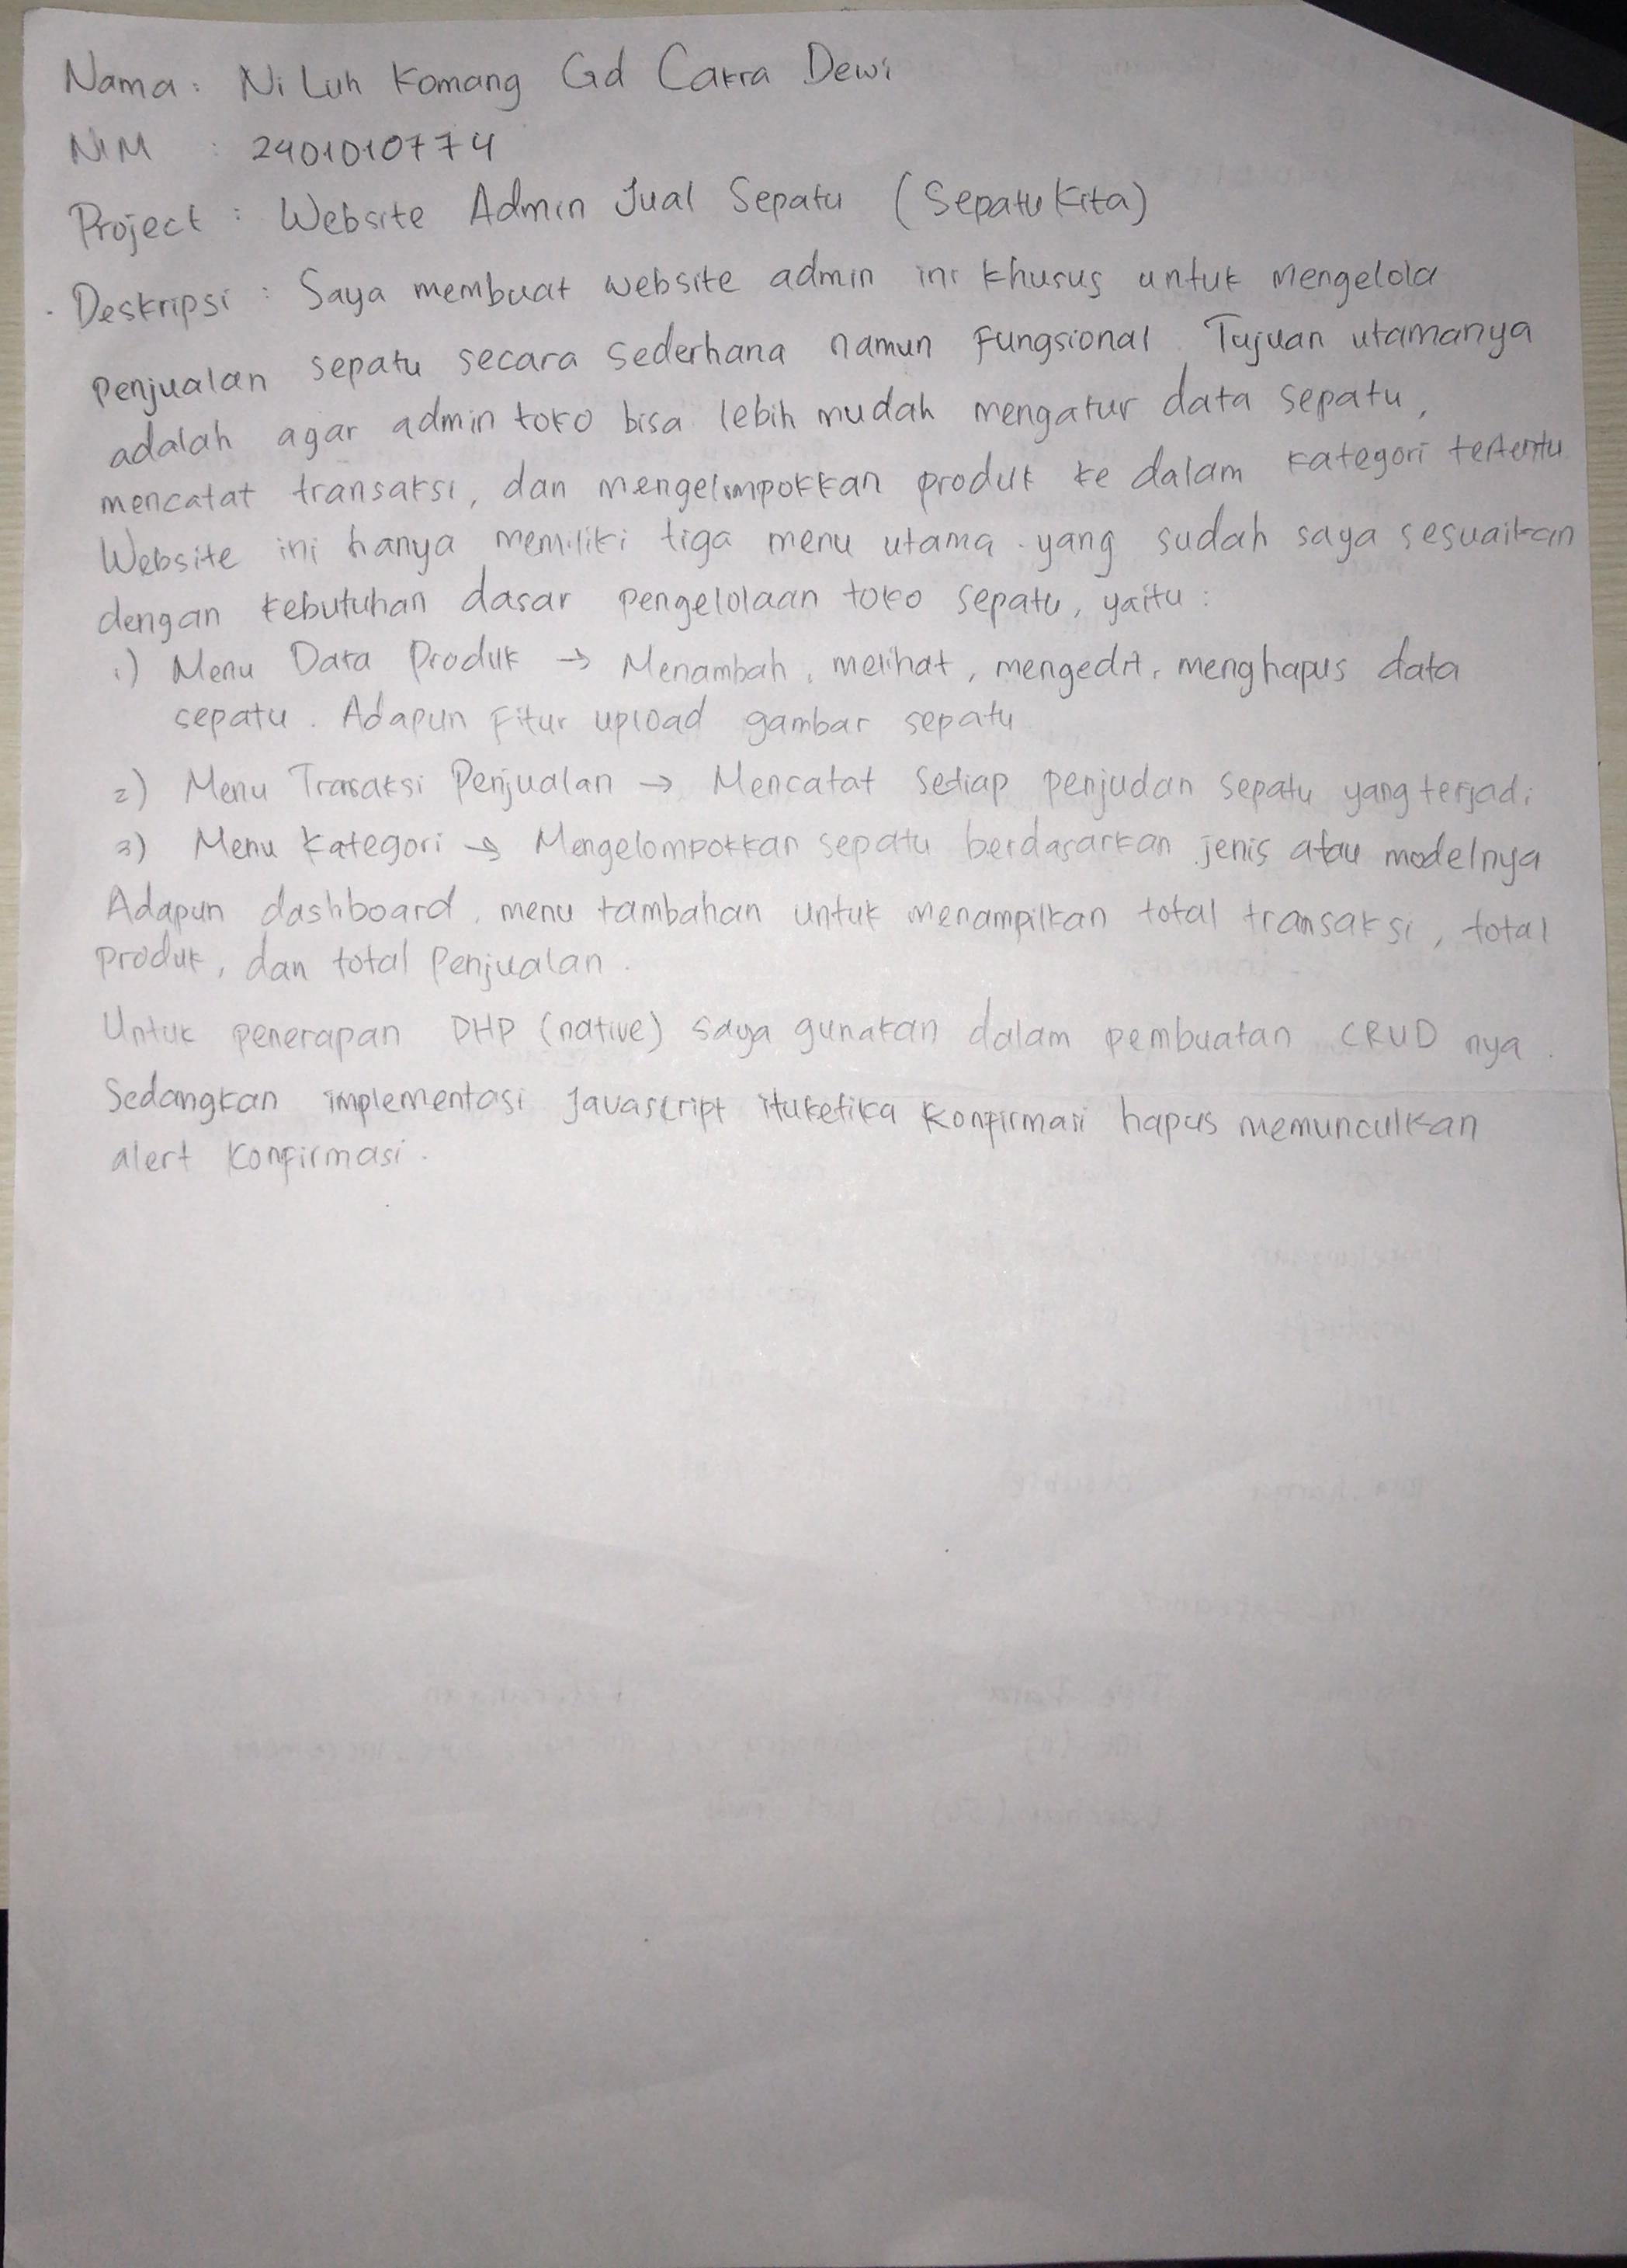 Nama : Ni Luh Komang Gd Cakra Dewi
NIM : 2401010774
Project : Website Admin Jual Sepatu (Sepatu Kita)
Deskripsi : Saya membuat website admin ini khusus untuk mengelola
penjualan sepatu secara sederhana namun fungsional. Tujuan utamanya
adalah agar admin toko bisa lebih mudah mengatur data sepatu,
mencatat transaksi, dan mengelompokkan produk ke dalam kategori tertentu
Website ini hanya memiliki tiga menu utama yang sudah saya sesuaikan
dengan kebutuhan dasar pengelolaan toko sepatu, yaitu :
1) Menu Data Produk → Menambah, melihat, mengedit, menghapus data
sepatu. Adapun fitur upload gambar sepatu
2) Menu Transaksi Penjualan → Mencatat setiap penjualan sepatu yang terjadi
3) Menu Kategori → Mengelompokkan sepatu berdasarkan jenis atau modelnya
Adapun dashboard, menu tambahan untuk menampilkan total transaksi, total
produk, dan total penjualan.
Untuk penerapan PHP (native) saya gunakan dalam pembuatan CRUD nya.
Sedangkan implementasi Javascript itu ketika konfirmasi hapus memunculkan
alert konfirmasi.